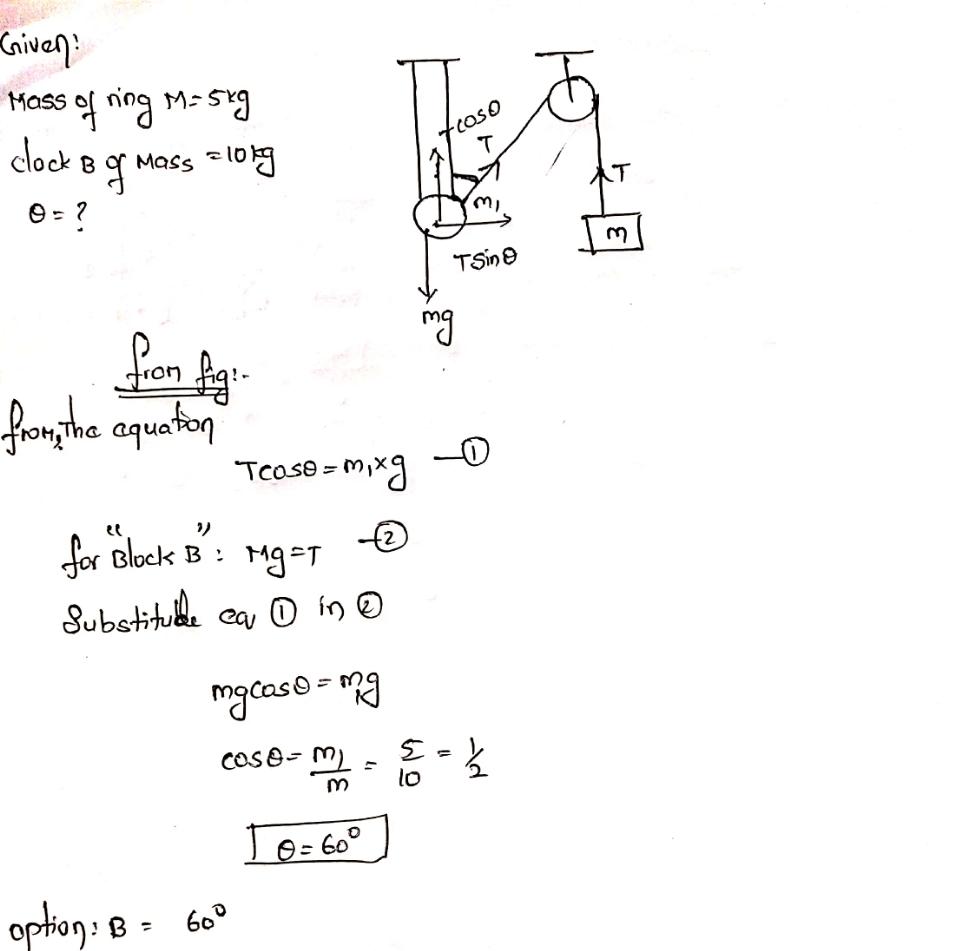 Given:
Mass of ring M = 5kg
clock B of Mass = 10kg
θ = ?
cosθ
T
T
m₁
m
Tsinθ
mg
from fig:-
from, the equation
Tcosθ = m₁×g —①
for "Block B": Mg = T —②
Substitute eq ① in ②
mgcosθ = m₁g
cosθ = m₁/m = 5/10 = 1/2
θ = 60°
option: B = 60°